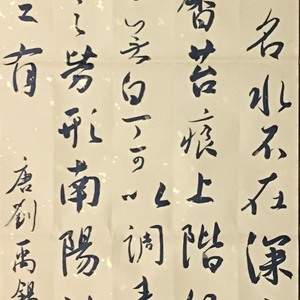 名水不在深
馨苔痕上階
無白丁可以調素
之勞形南陽
之有
唐劉禹錫